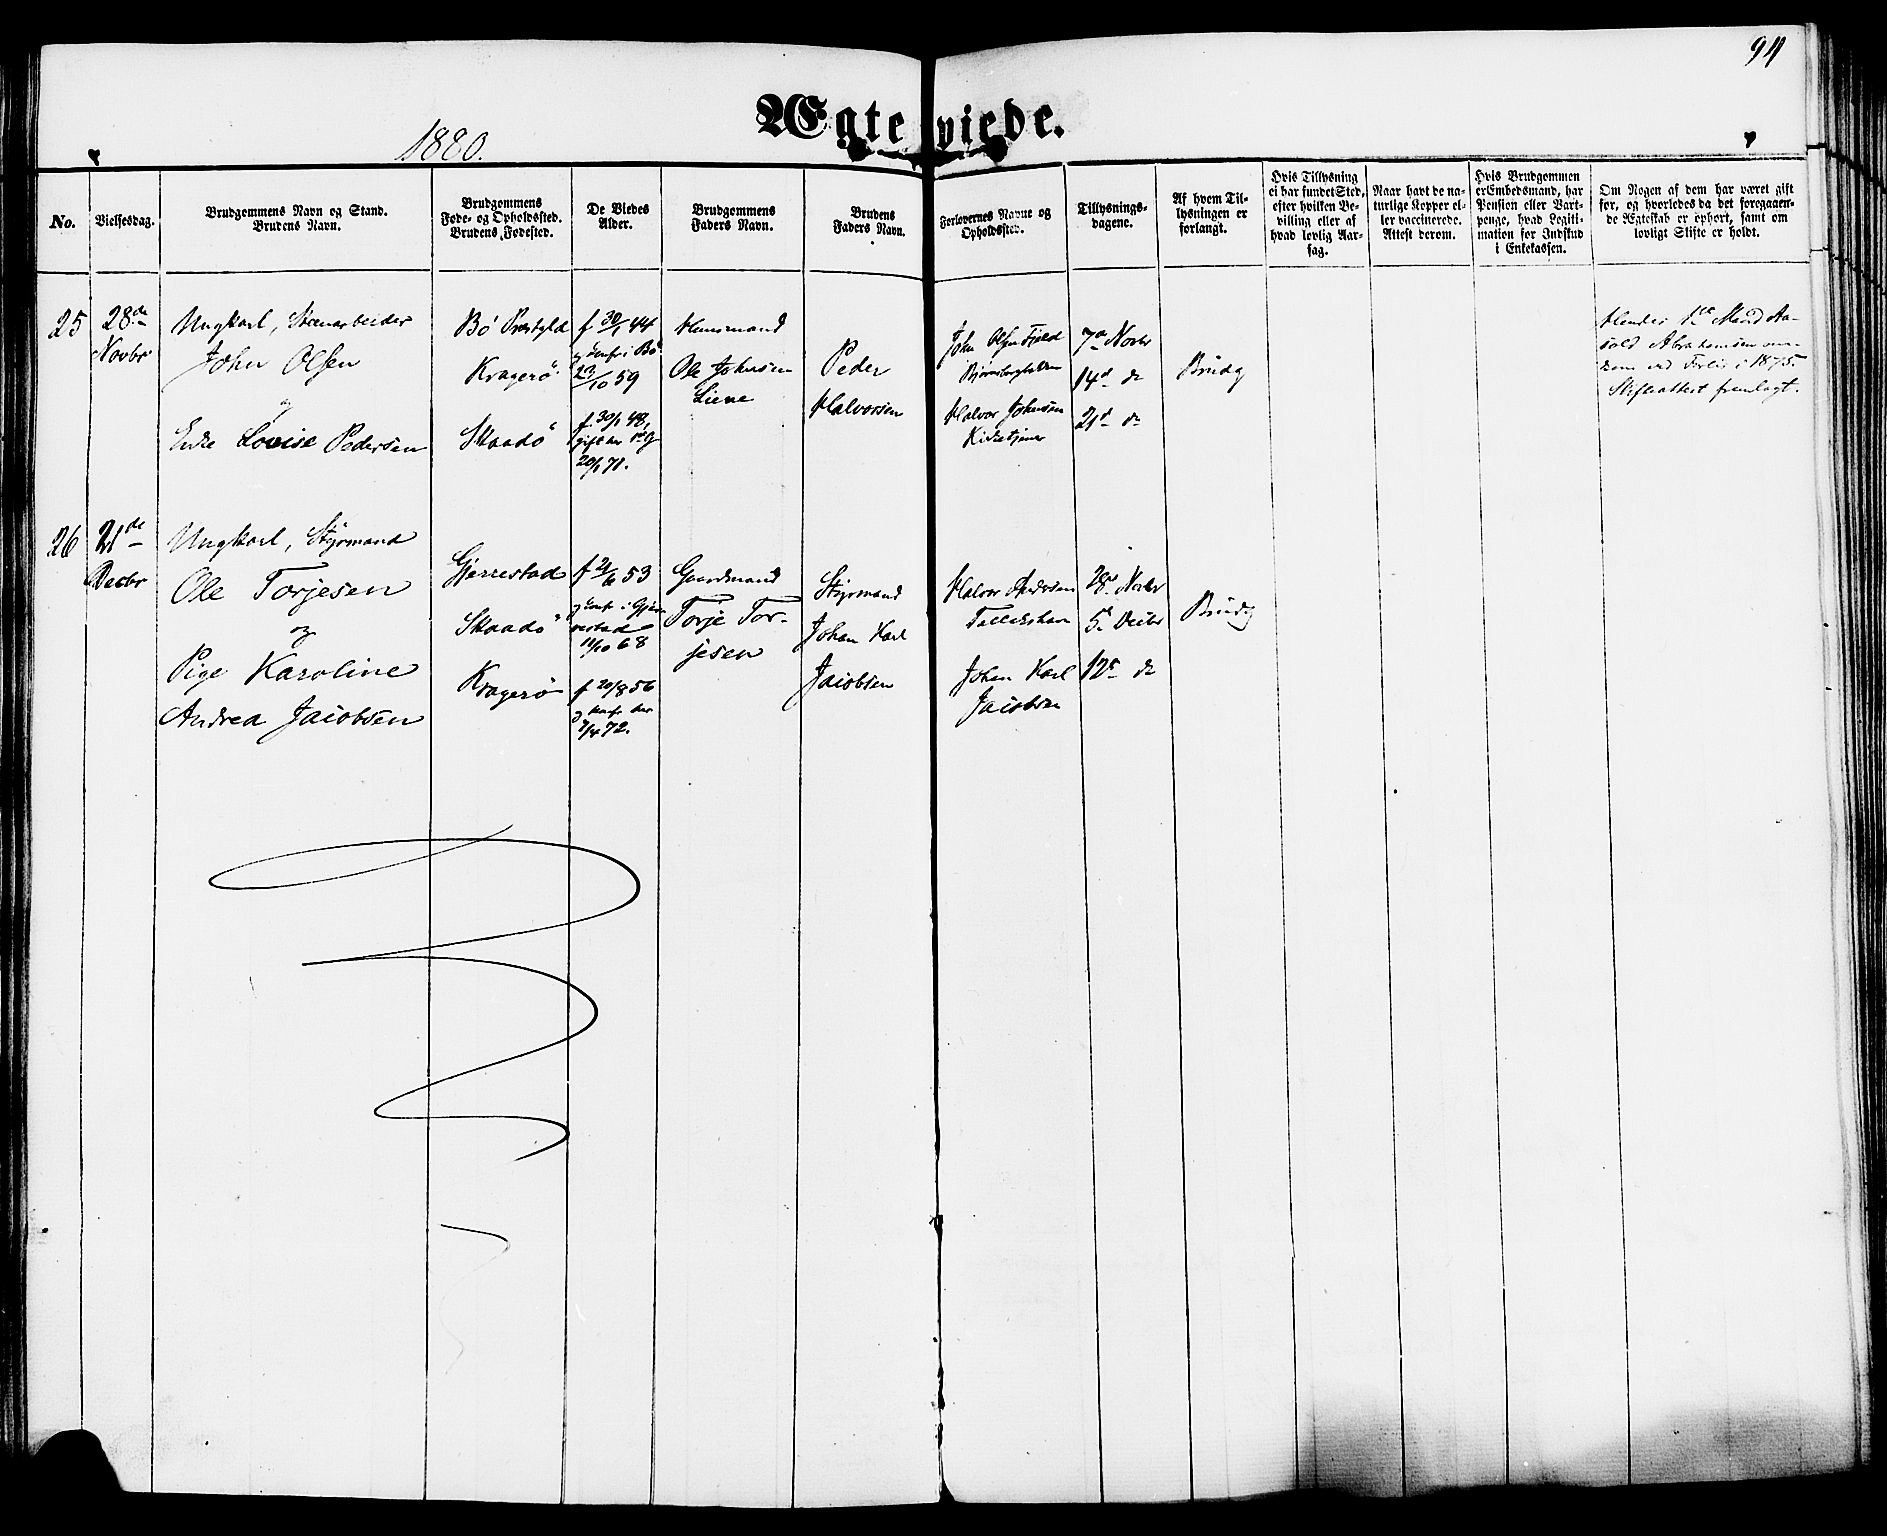 94
Ægteviede.
1880.
No.
Vielsesdag.
Brudgommens Navn og Stand.
Brudens Navn.
Brudgommens
Føde- og Opholdssted.
Brudens Fødested.
De Viedes
Alder.
Brudgommens
Faders Navn.
Brudens
Faders Navn.
Forlovernes Navne og
Opholdssted.
Tillysnings-
dagene.
Af hvem Til-
lysningen er
forlangt.
Hvis Tillysning
ei har fundet Sted,
efter hvilken Be-
villing eller af
hvad lovlig Aar-
sag.
Naar havt de na-
turlige Kopper el-
ler vaccinerede.
Attest derom.
Hvis Brudgommen
er Embedsmand, har
Pension eller Vart-
penge, hvad Legiti-
mation for Indskud
i Enkekassen.
Om Nogen af dem har været gift
før, og hvorledes da det foregaaen-
de Ægteskab er ophørt, samt om
lovligt Skifte er holdt.
25
28de
Novbr
Ungkarl, Stenarbeider
John Olsen
og
Enke Lovise Pedersen
Bø Prestgld
Kragerø
Skaadø
f 30/1 44
og konfr i Bø
23/10 59
f 30/1 48,
gift her 1ste G
20/1 71.
Husmand
Ole Johnsen
Liene
Peder
Halvorsen
John Olsen Fjeld
Halvor Johnsen
Kirketjener
7de Novbr
14d do
21d do
Brudg
Hendes 1ste Mand Aa-
sold Abrahamsen om-
kom ved Forlis i 1875.
Skifteattest fremlagt.
26
21de
Decbr
Ungkarl, Styrmand
Ole Torjesen
og
Pige Karoline
Andrea Jacobsen
Gjerrestad
Skaadø
Kragerø
f 2/6 53
og konf i Gjer-
restad
11/10 68
f 20/8 56
og konfr her
7/4 72.
Gaardmand
Torje Tor-
jesen
Styrmand
Johan Karl
Jacobsen
Halvor Andersen
Johan Karl
Jacobsen
28de Novbr
5d Decbr
12d do
Brudg